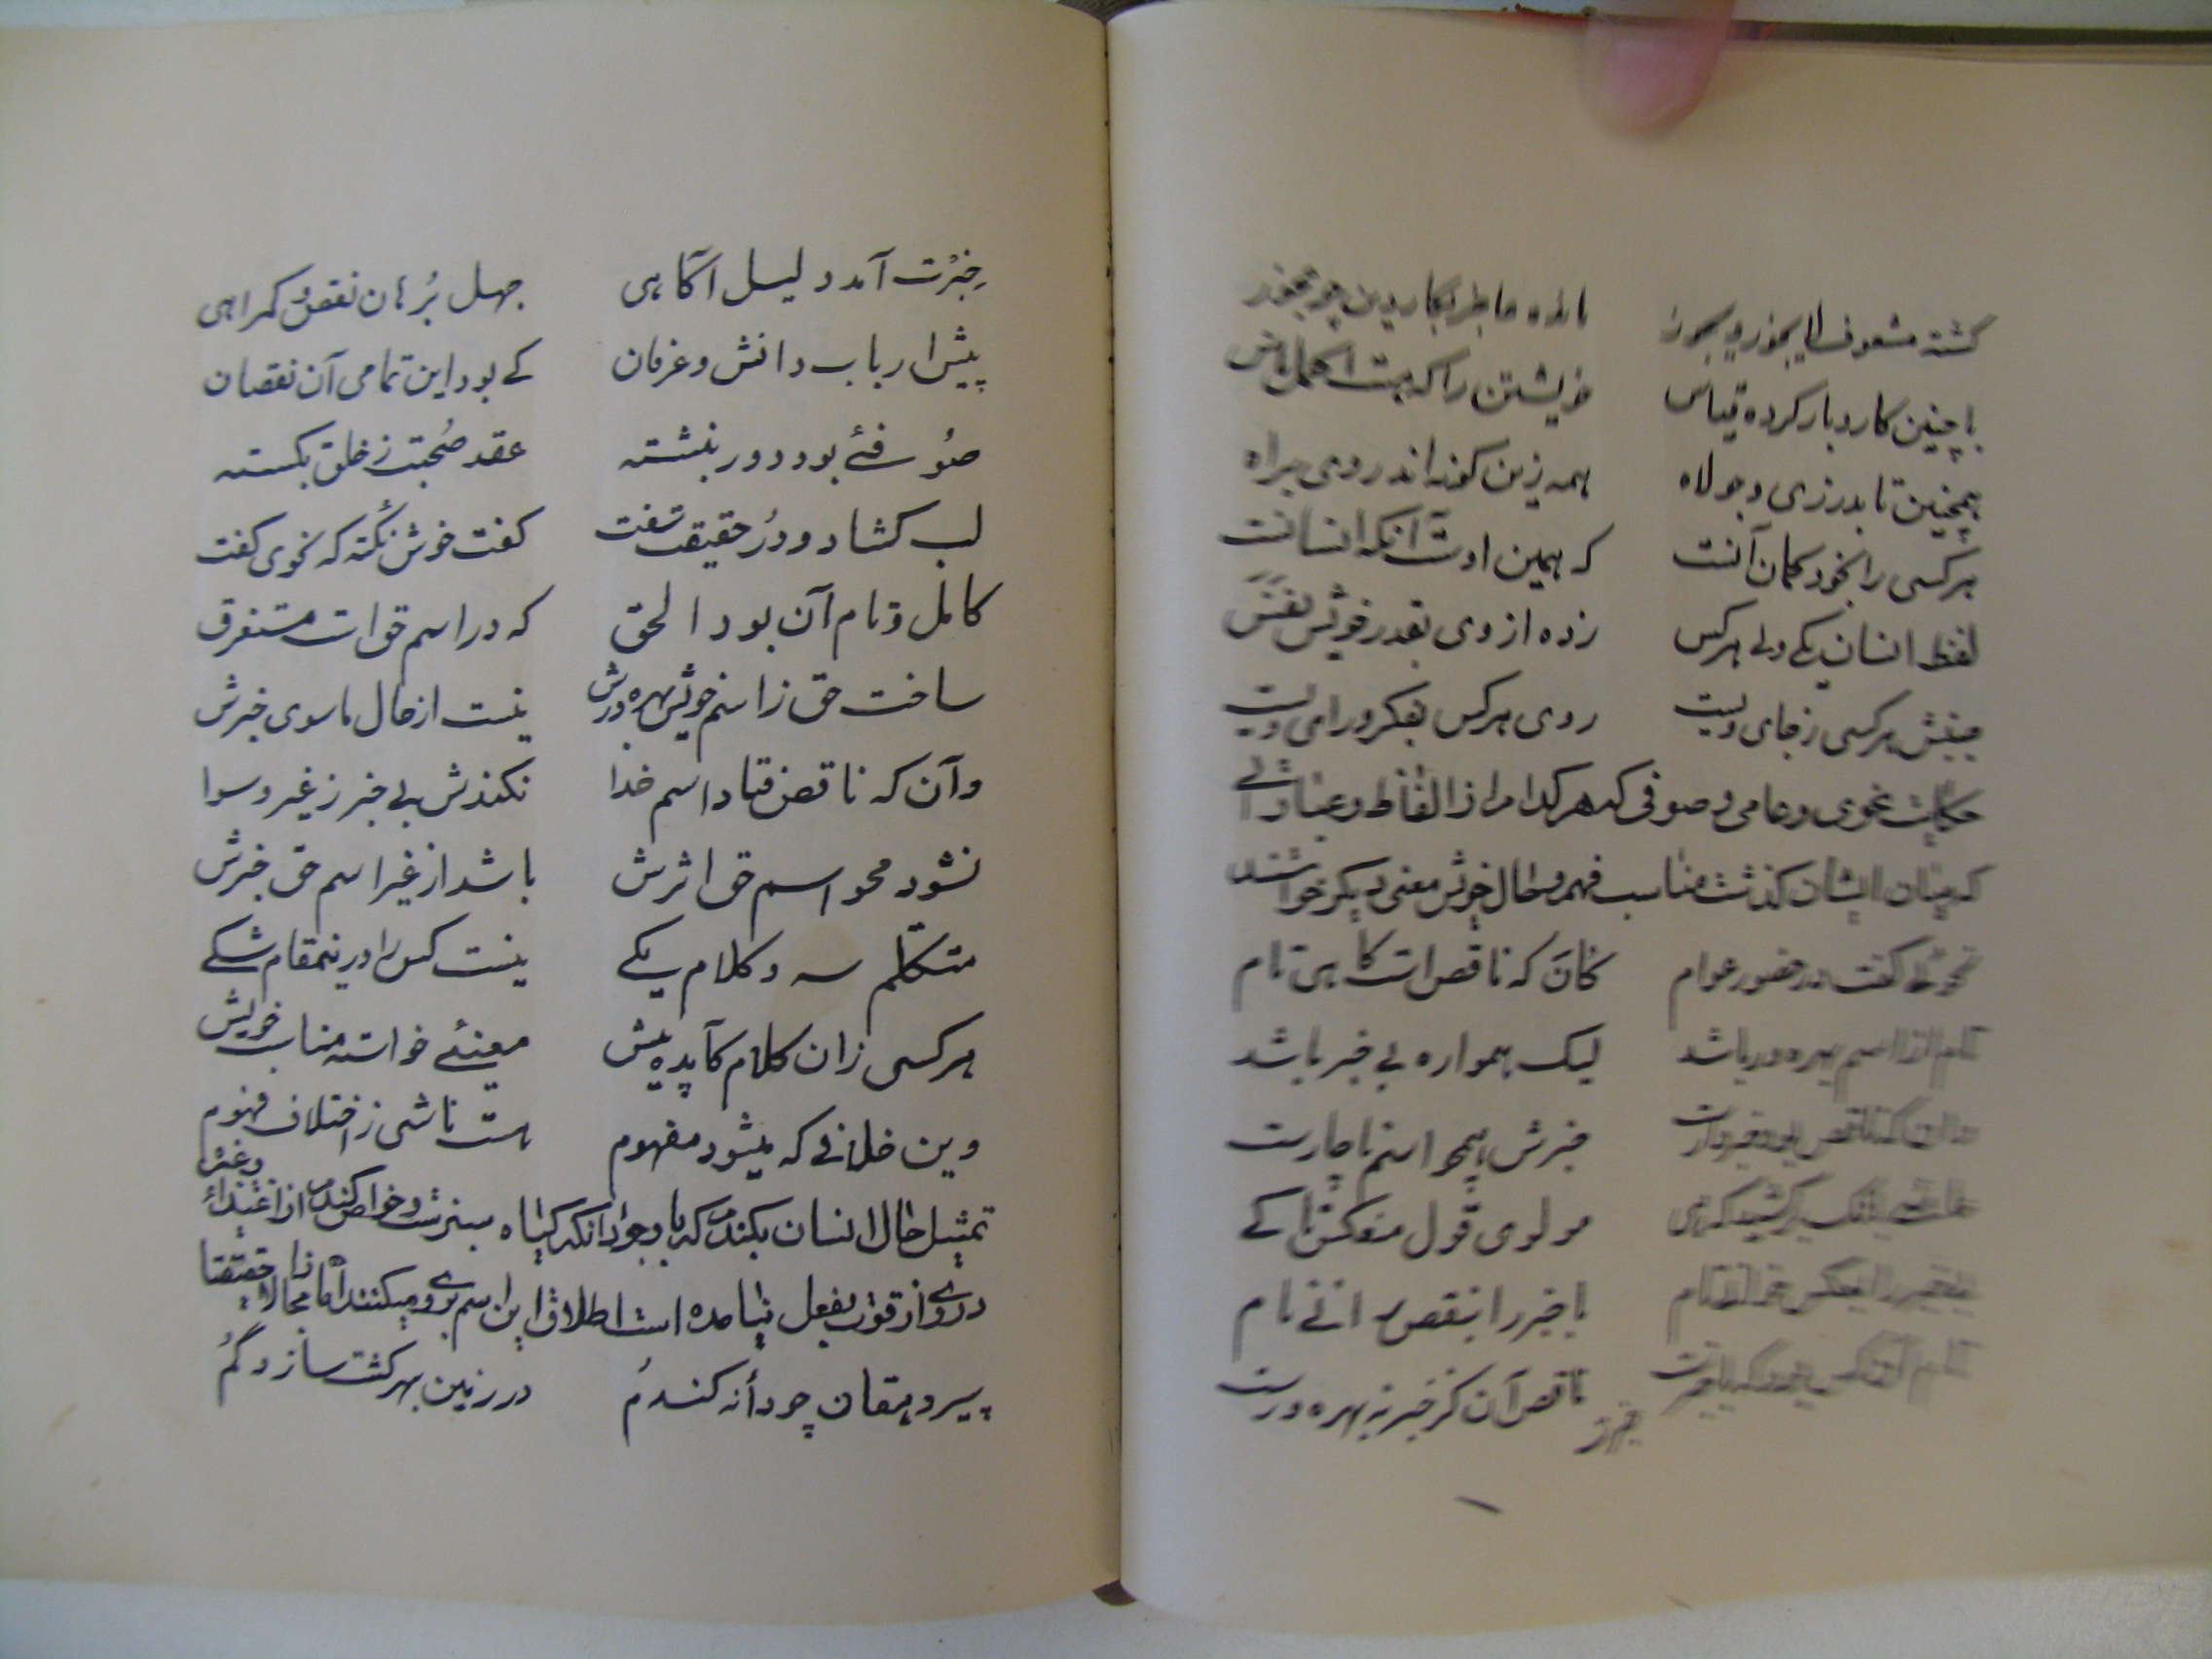 گشته مشعوف لایجوز و یجوز مانده عاجز بکار دین چو عجوز
باچنین کاروبار کرده قیاس خویشتن را که هست اکمل ناس
همچنین تا بدرزی و جولاه همه زین گونه اند روی براه
هرکسی را بخود گمان آنست که همین اوست آنکه انسانست
لفظ انسان یکی ولی هرکس زده از وی بقدر خویش نفس
جنبش هرکسی ز جای ویست روی هرکس بفکر و رای ویست
حکایت نحوی و عامی و صوفی که هر کدام از الفاظ و عباراتی
که میان ایشان گذشت مناسب فهم و حال خویش معنی دیگر خواستند
نحوئی گفت در حضور عوام کان که ناقص است گاهی تام
تام از اسم بهره ور باشد لیک همواره بی خبر باشد
خبرش همچو اسم ناچارست
مولوی قول منعکس تا کی
باخبر را بنقص رانی نام
ناقص آن کز خبر نه بهره ورست
خبرت
خبرت آمد دلیل آگاهی جهل برهان نقص و گمراهی
پیش ارباب دانش و عرفان کے بود این تمامی آن نقصان
صوفئے بود دور بنشسته عقد صحبت ز خلق بگسسته
لب گشاد و در حقیقت سفت گفت خوش نکته که نحوی گفت
کامل و تام آن بود الحق که در اسم حق است مستغرق
ساخت حق ز اسم خویش بهره ورش نیست از حال ماسوی خبرش
وآن که ناقص فتاد اسم خدا نکندش بی خبر ز غیر و سوا
نشود محو اسم حق اثرش باشد از غیر اسم حق خبرش
متکلم سه و کلام یکے نیست کس را درینمقام شکے
هرکسی زان کلام کآیدپیش معنئے خواسته مناسب خویش
وین خلافے که میشود مفهوم هست ناشی ز اختلاف فهوم
تمثیل حال انسان بگندم که با وجود آنکه گیاه سبزست و خواص گندم از اغتذاء وغیره
در وی از قوت بفعل نیامده است اطلاق این اسم بروی میکنند اما مجازا لا حقیقتا
پیر دهقان چو دانه گندم در زمین بهر کشت سازد گم